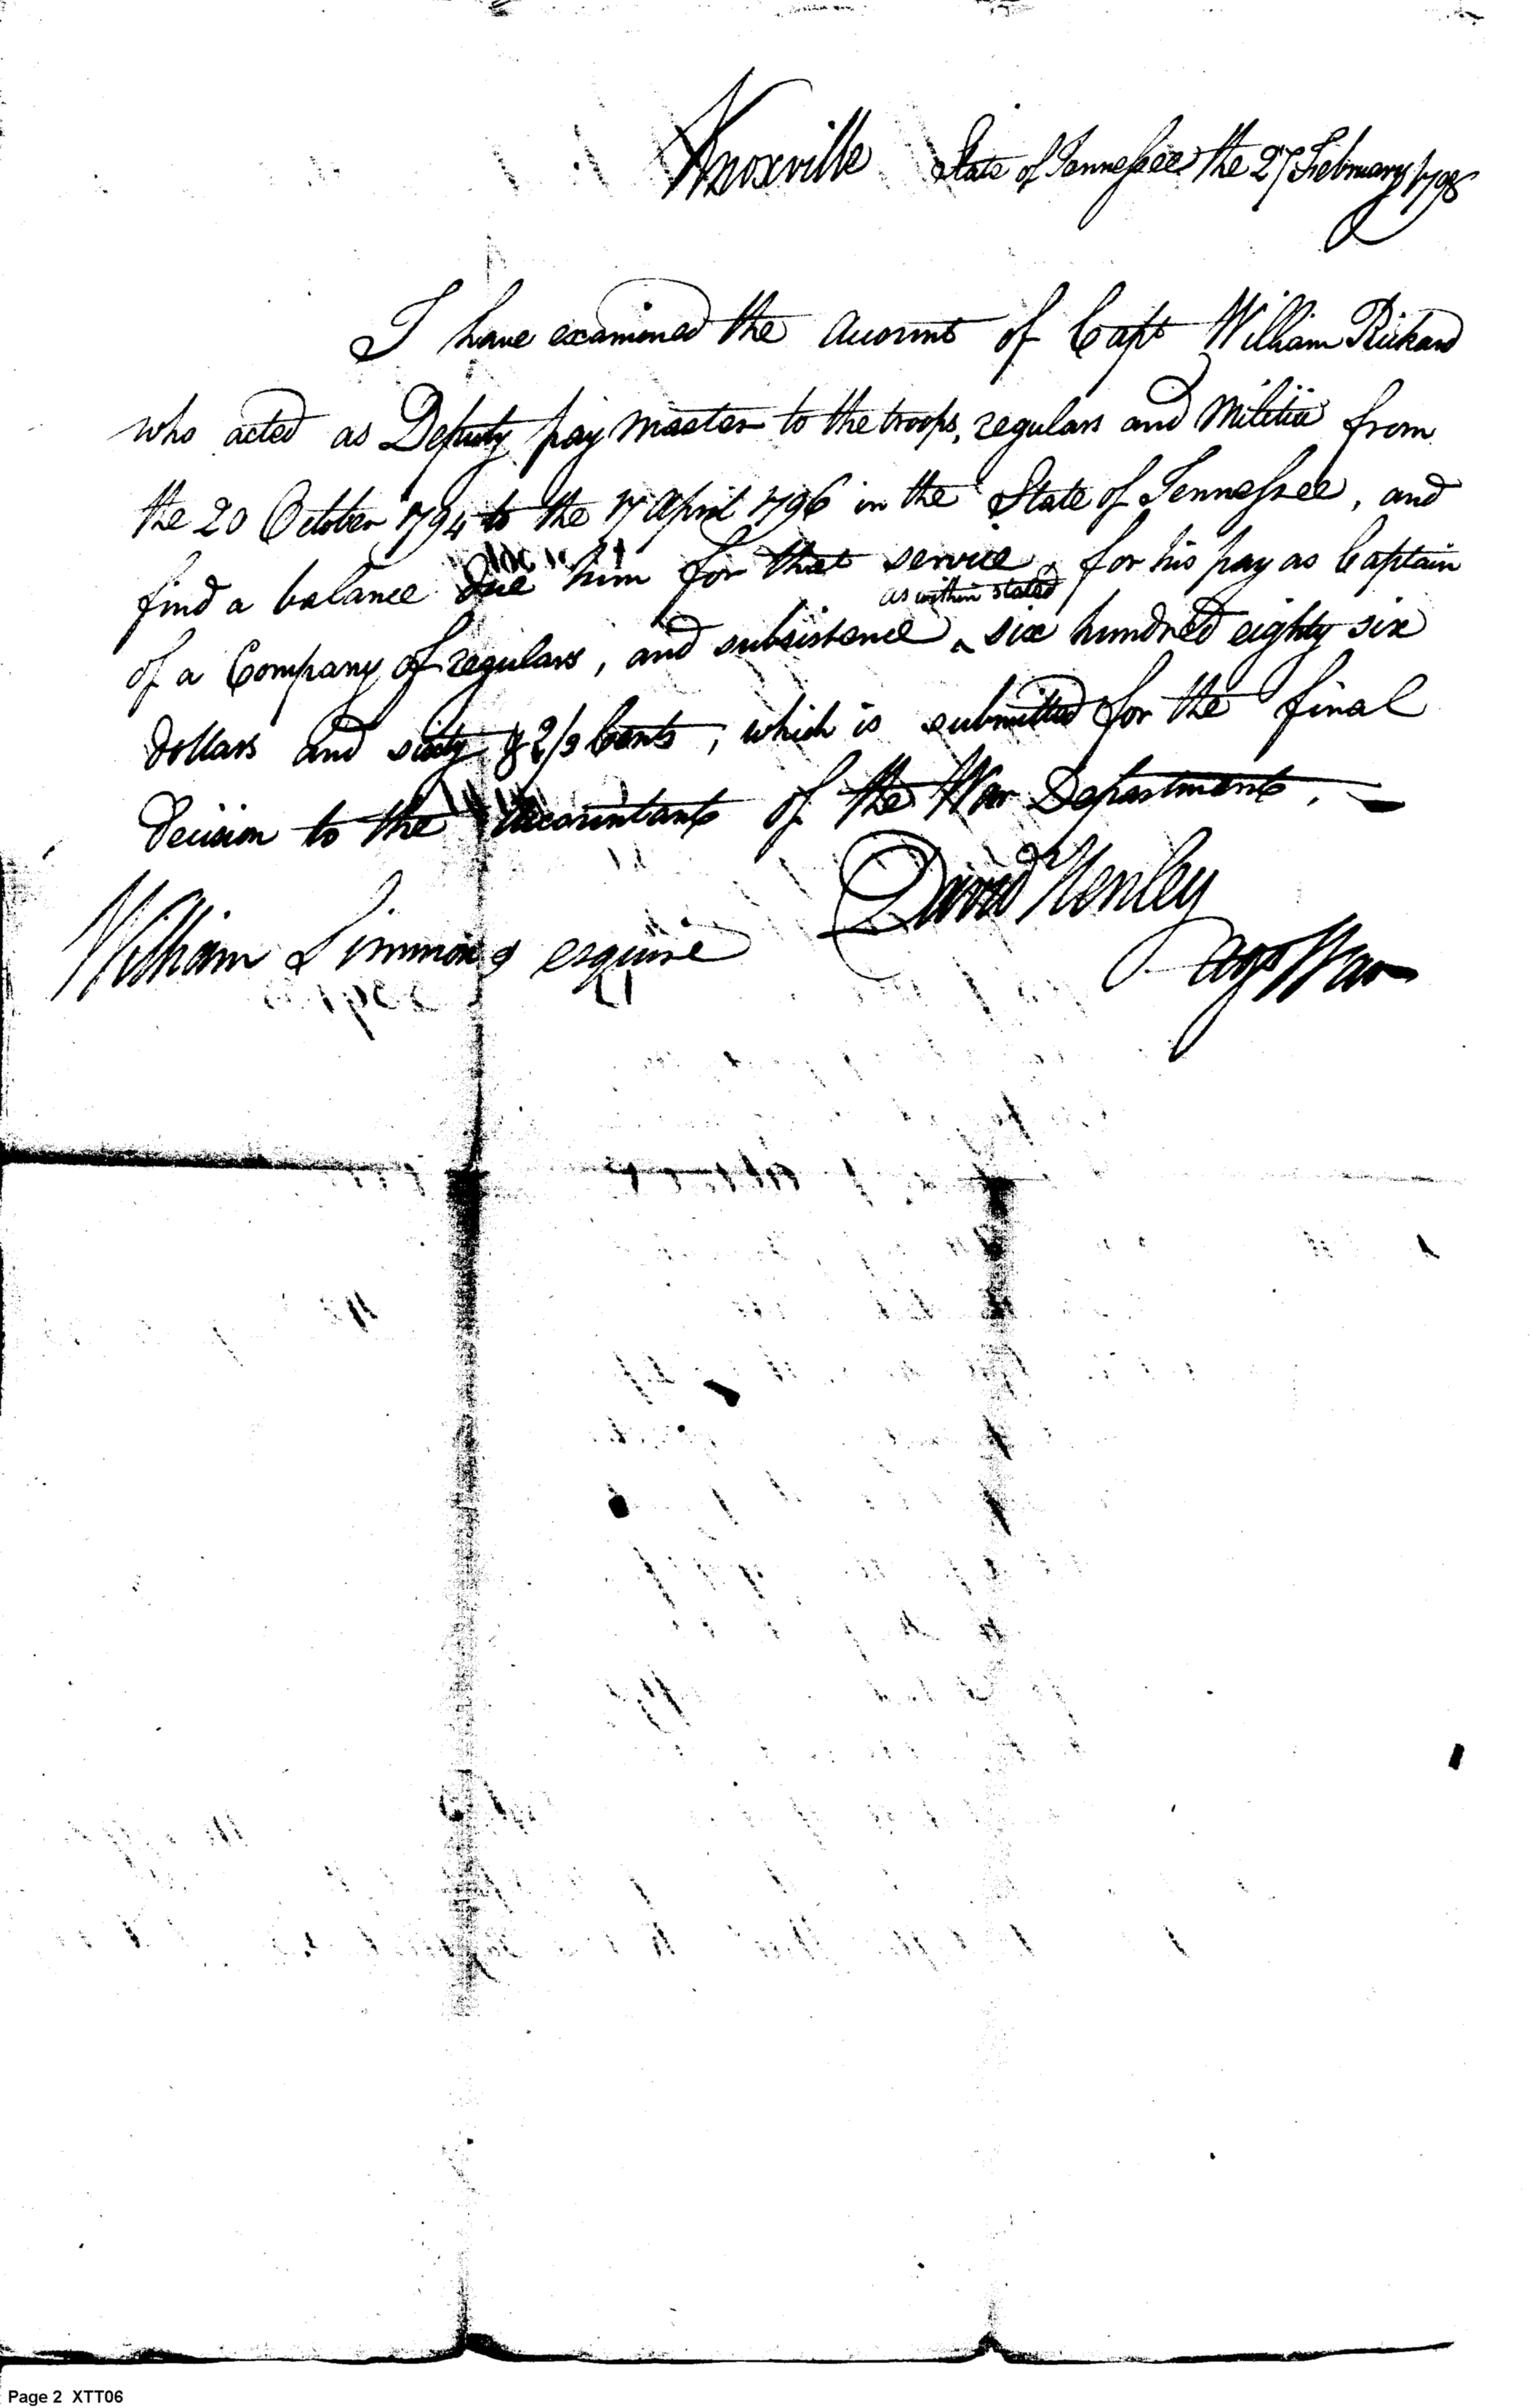 Knoxville State of Tennessee the 27 February 1798
I have examined the account of Capt William Rickard
who acted as Deputy pay master to the troops, regulars and Militia from
the 20 October 1794 to the 17 April 1796 in the State of Tennessee, and
find a balance due him for that service & for his pay as Captain
as within stated
of a Company of regulars, and subsistence ^ six hundred eighty six
dollars and sixty & 2/3 Cents, which is submitted for the final
decision to the Accountants of the War Department.
David Henley
William Simmons esquire
Agt War
Page 2 XTT06